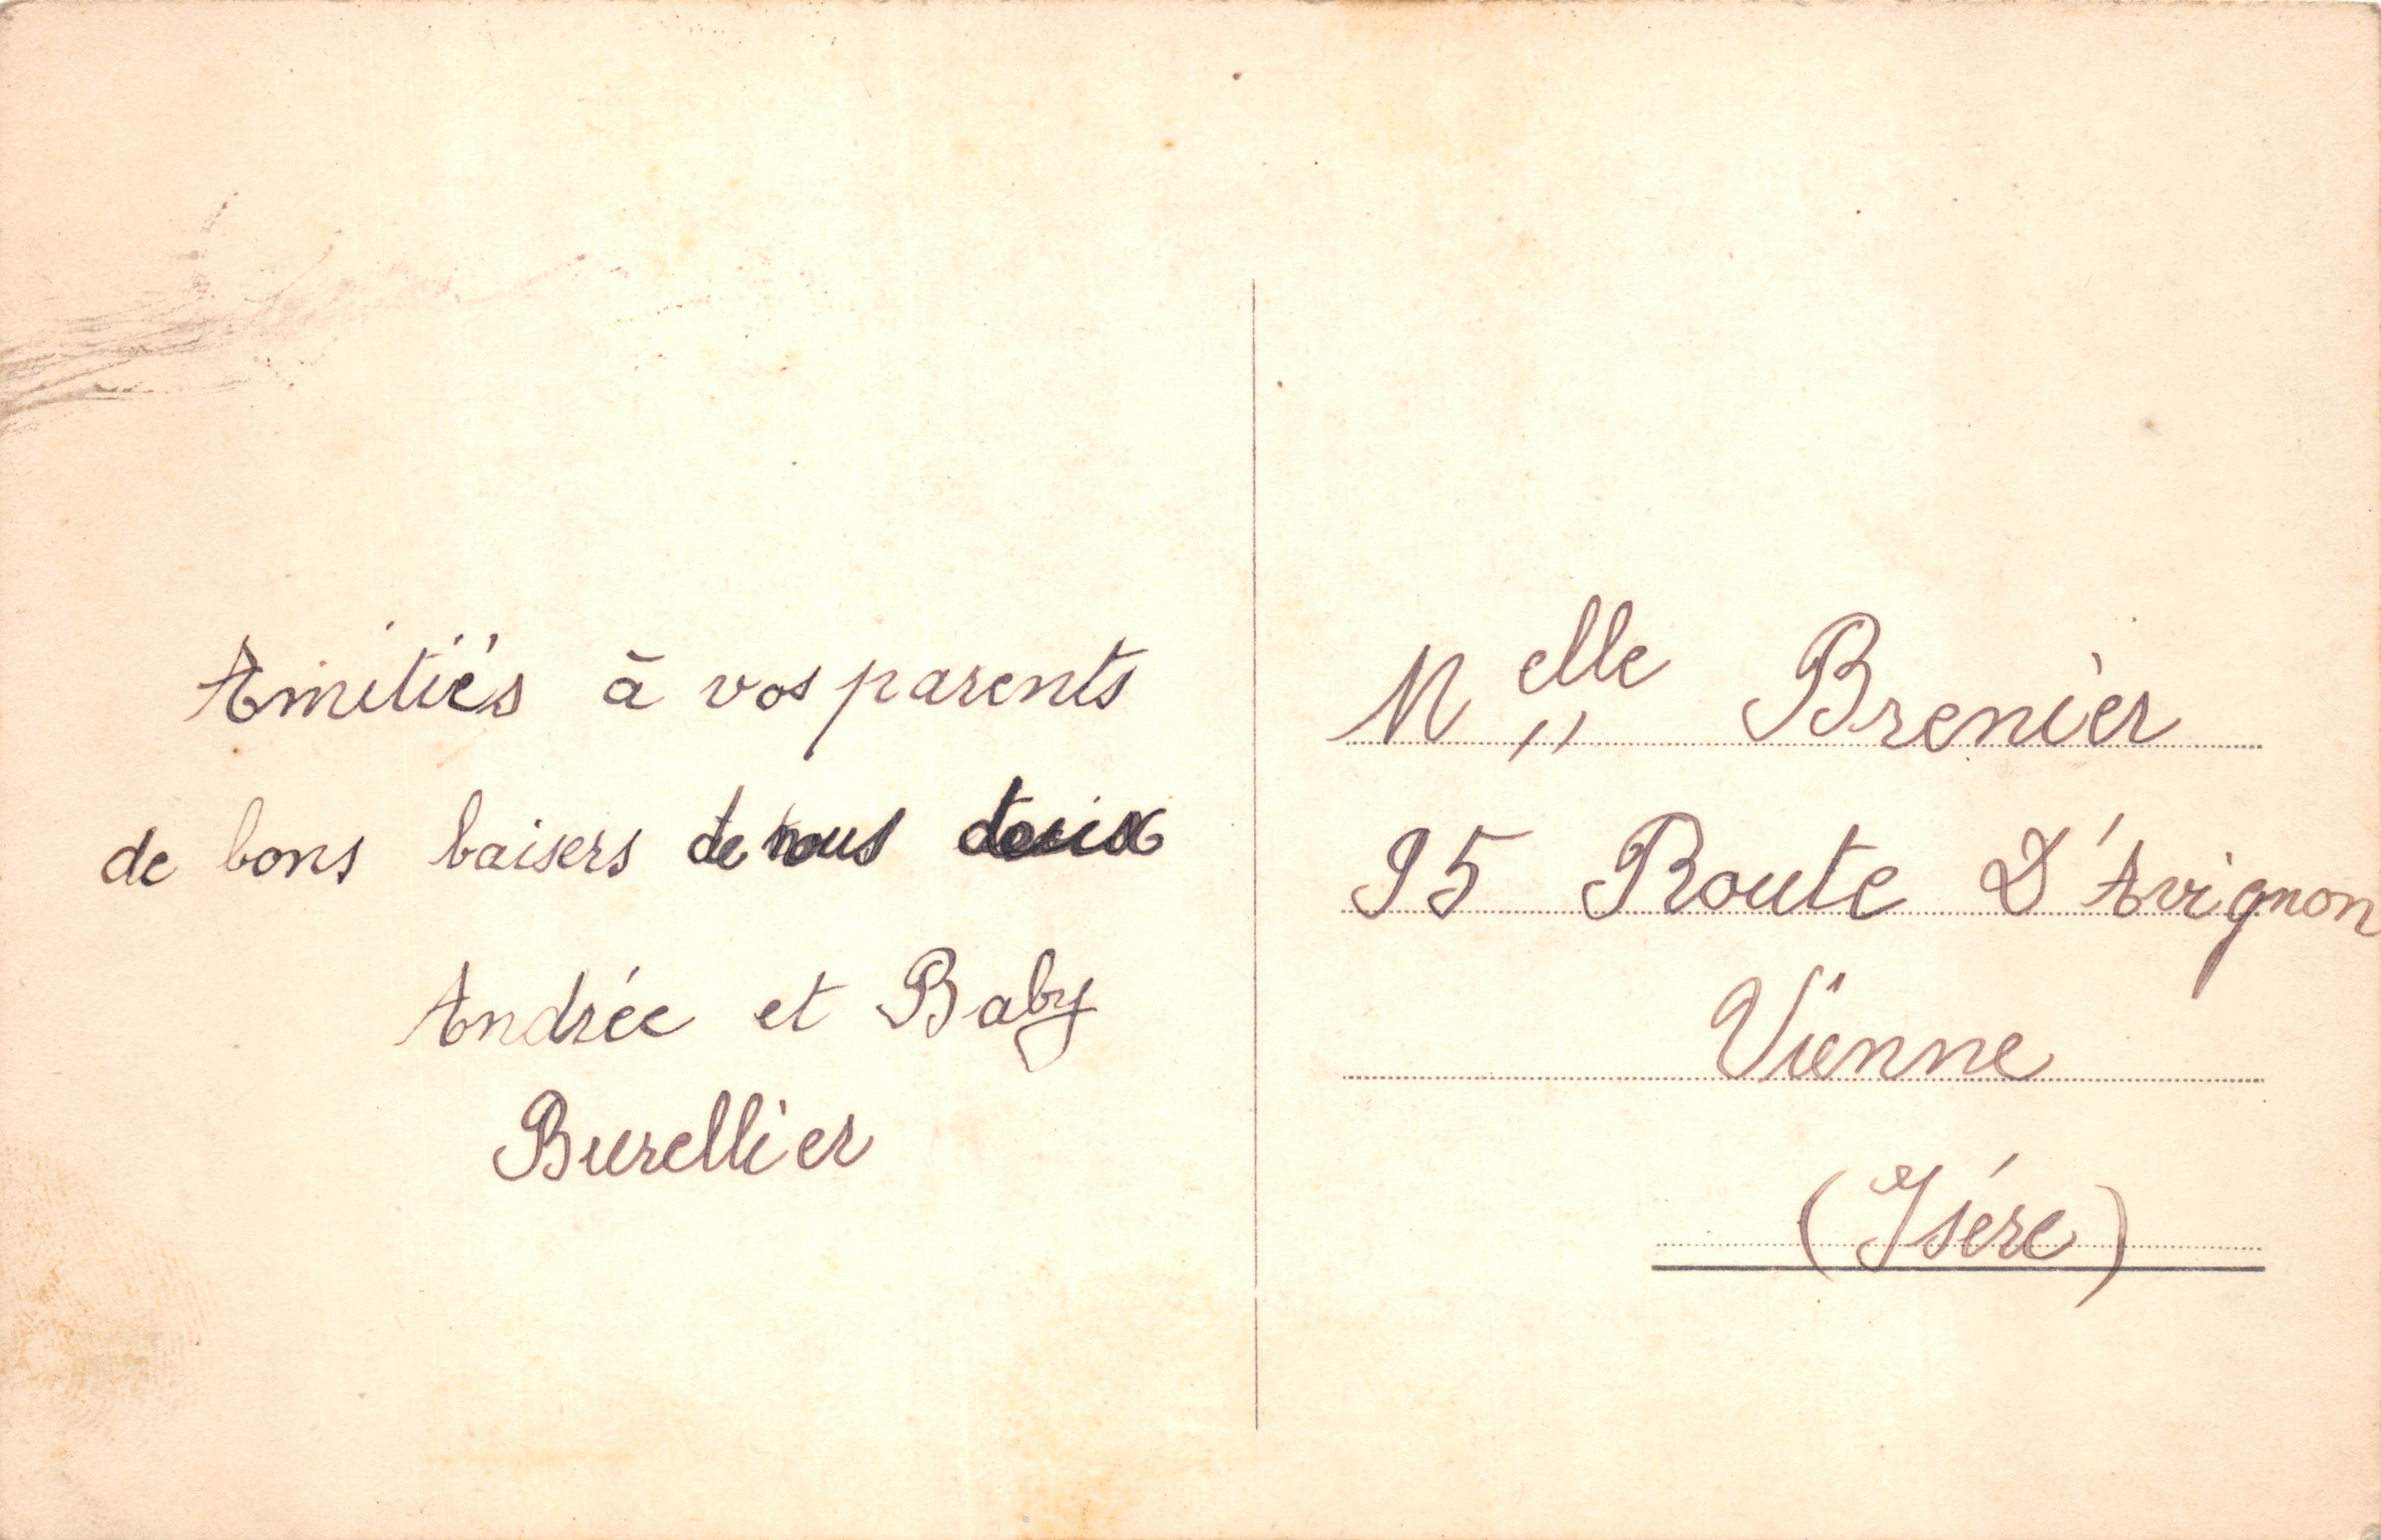 Amitiés à vos parents
de bons baisers de nous deux
Andrée et Baby
Burellier
Melle Brenier
95 Route D'Avignon
Vienne
(Isére)